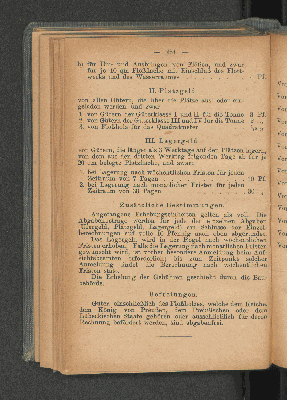 b) für Ein- und Ausbringen von Flößen, und zwar
für je 10 qm Floßfläche mit Einschluß des Floß-
werks und des Wasserraums
Pf.
II. Platzgeld
von allen Gütern, die über die Plätze aus- oder ein-
geladen werden, und zwar
1. von Gütern der Güterklasse I und II für die Tonne 3 Pf.
2. von Gütern der Güterklasse III und IV für die Tonne
3. von Floßholz für das Quadratmeter
III. Lagergeld
von Gütern, die länger als 3 Werktage auf den Plätzen lagern,
von dem aus der dritten Werktag folgenden Tage ab für je
20 qm belegte Platzfläche, und zwar
1. bei Lagerung nach wöchentlichen Fristen für jeden
Zeitraum von 7 Tagen 10 Pf.
2. bei Lagerung nach monatlichen Fristen für jeden
Zeitraum von 30 Tagen
Zusätzliche Bestimmungen.
Angefangene Erhebungseinheiten gelten als voll. Die
Abgabenbeträge werden für jede der einzelnen Abgaben
(Ufergeld, Platzgeld, Lagergeld) am Schlusse der Einzel-
berechnungen auf volle 10 Pfennig nach oben abgerundet.
Das Lagergeld wird in der Regel nach wöchentlichen
Fristen erhoben. Falls die Lagerung nach monatlichen Fristen
gewünscht wird, ist vorher besondere Anmeldung beim Auf-
sichtsbeamten erforderlich; bis zum Zeitpunkte solcher
Anmeldung findet die Berechnung nach wöchentlichen
Fristen statt.
Die Erhebung der Gebühren geschieht durch die Bau-
behörde.
Befreiungen.
Güter einschließlich des Floßholzes, welche dem Reiche,
dem König von Preußen, dem Preußischen oder dem
Lübeckischen Staate gehören oder ausschließlich für deren
Rechnung befördert werden, sind abgabenfrei.